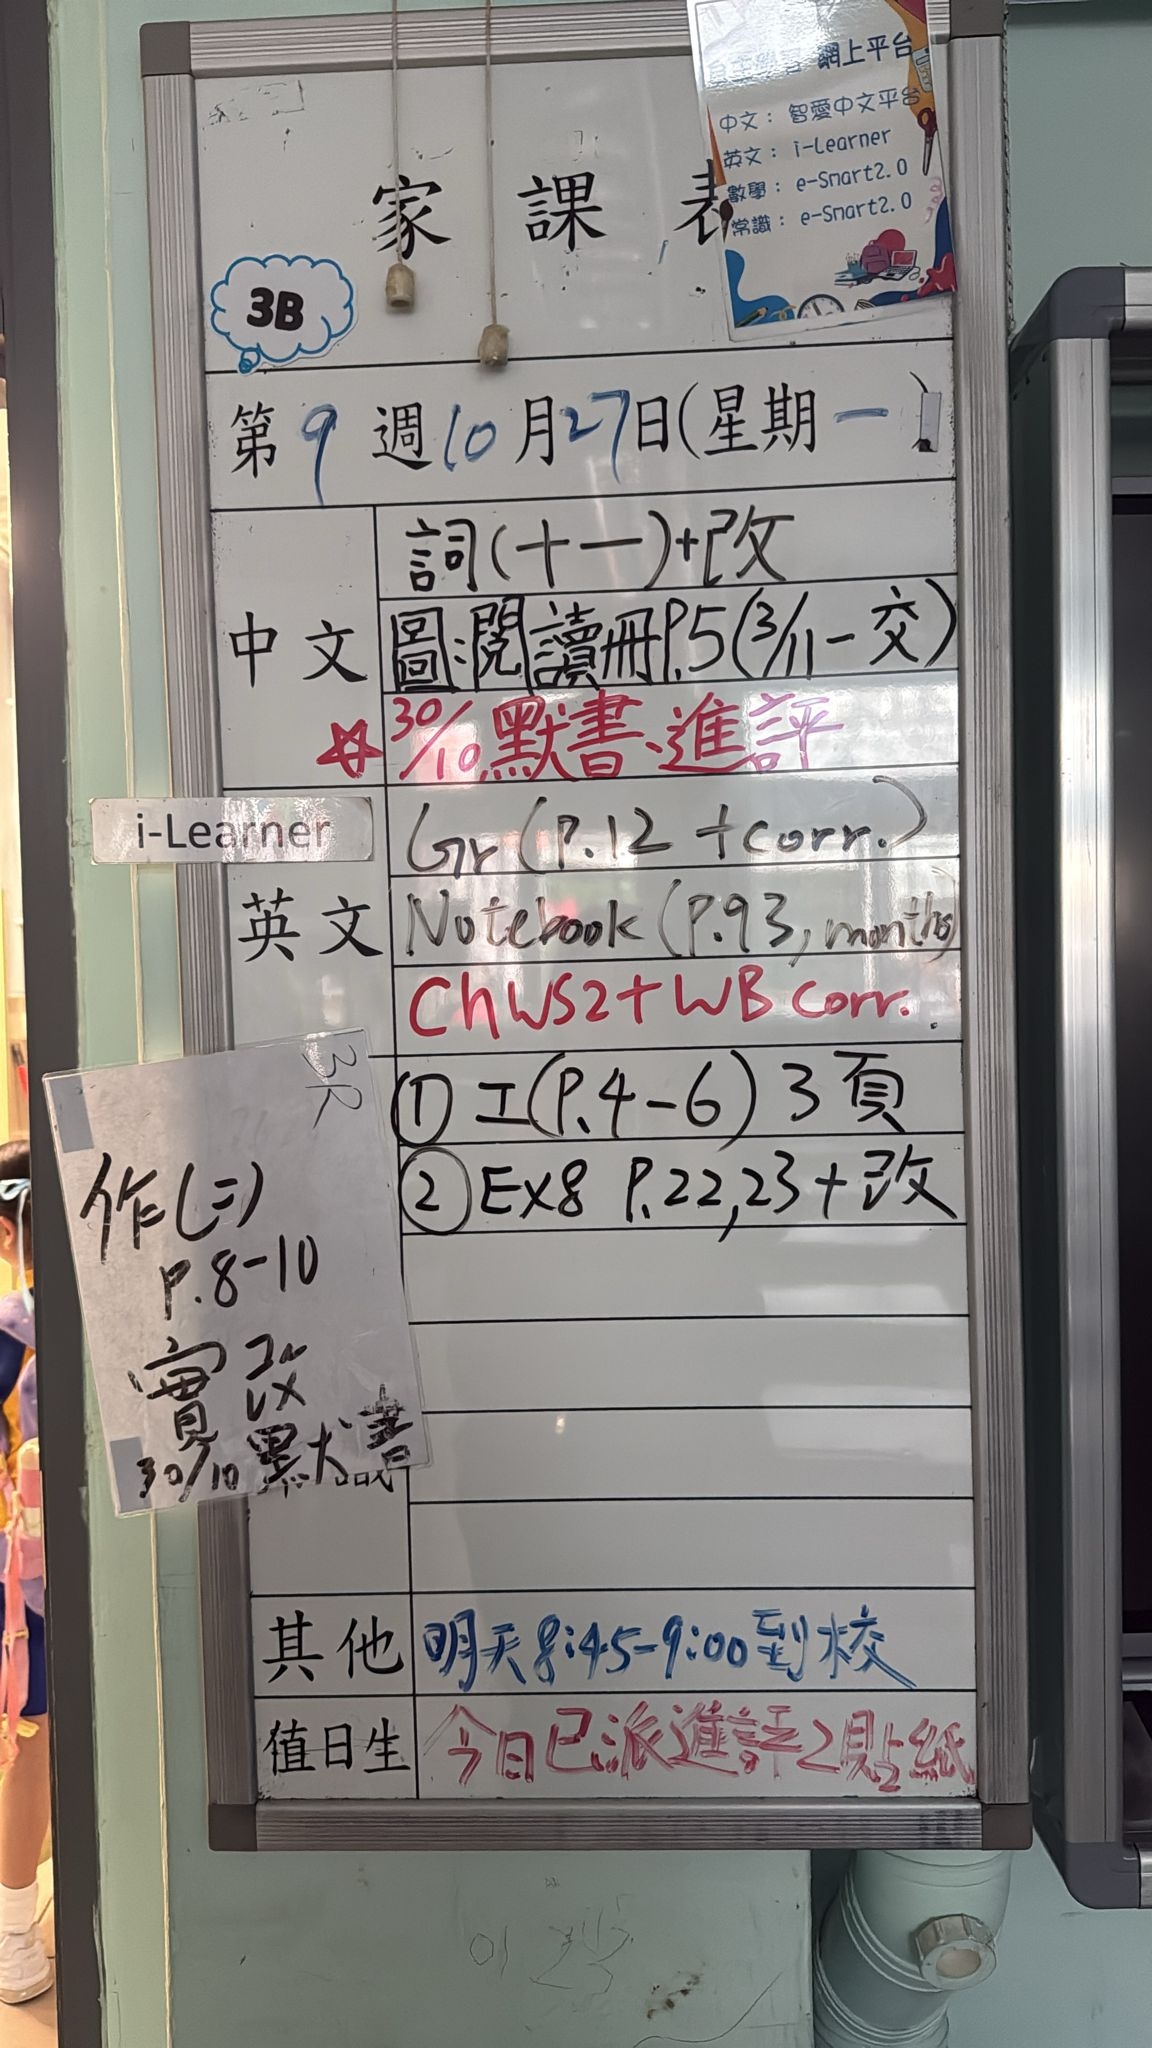 網上平台
中文：智愛中文平台
英文：i-Learner
數學：e-Smart2.0
常識：e-Smart2.0
家課表
3B
第9週10月27日(星期一)
中文
詞(十一)+改
圖:閱讀冊P.5(3/11-交)
30/10默書、進評
i-Learner
英文
Gr(P.12+corr.)
Notebook(P.93, months)
Ch WS2+WB corr.
① 工(P.4-6) 3頁
② Ex8 P.22,23+改
作(二)
P.8-10
實改
30/10 默書
識
其他
明天8:45-9:00到校
值日生
今日已派進評2貼紙